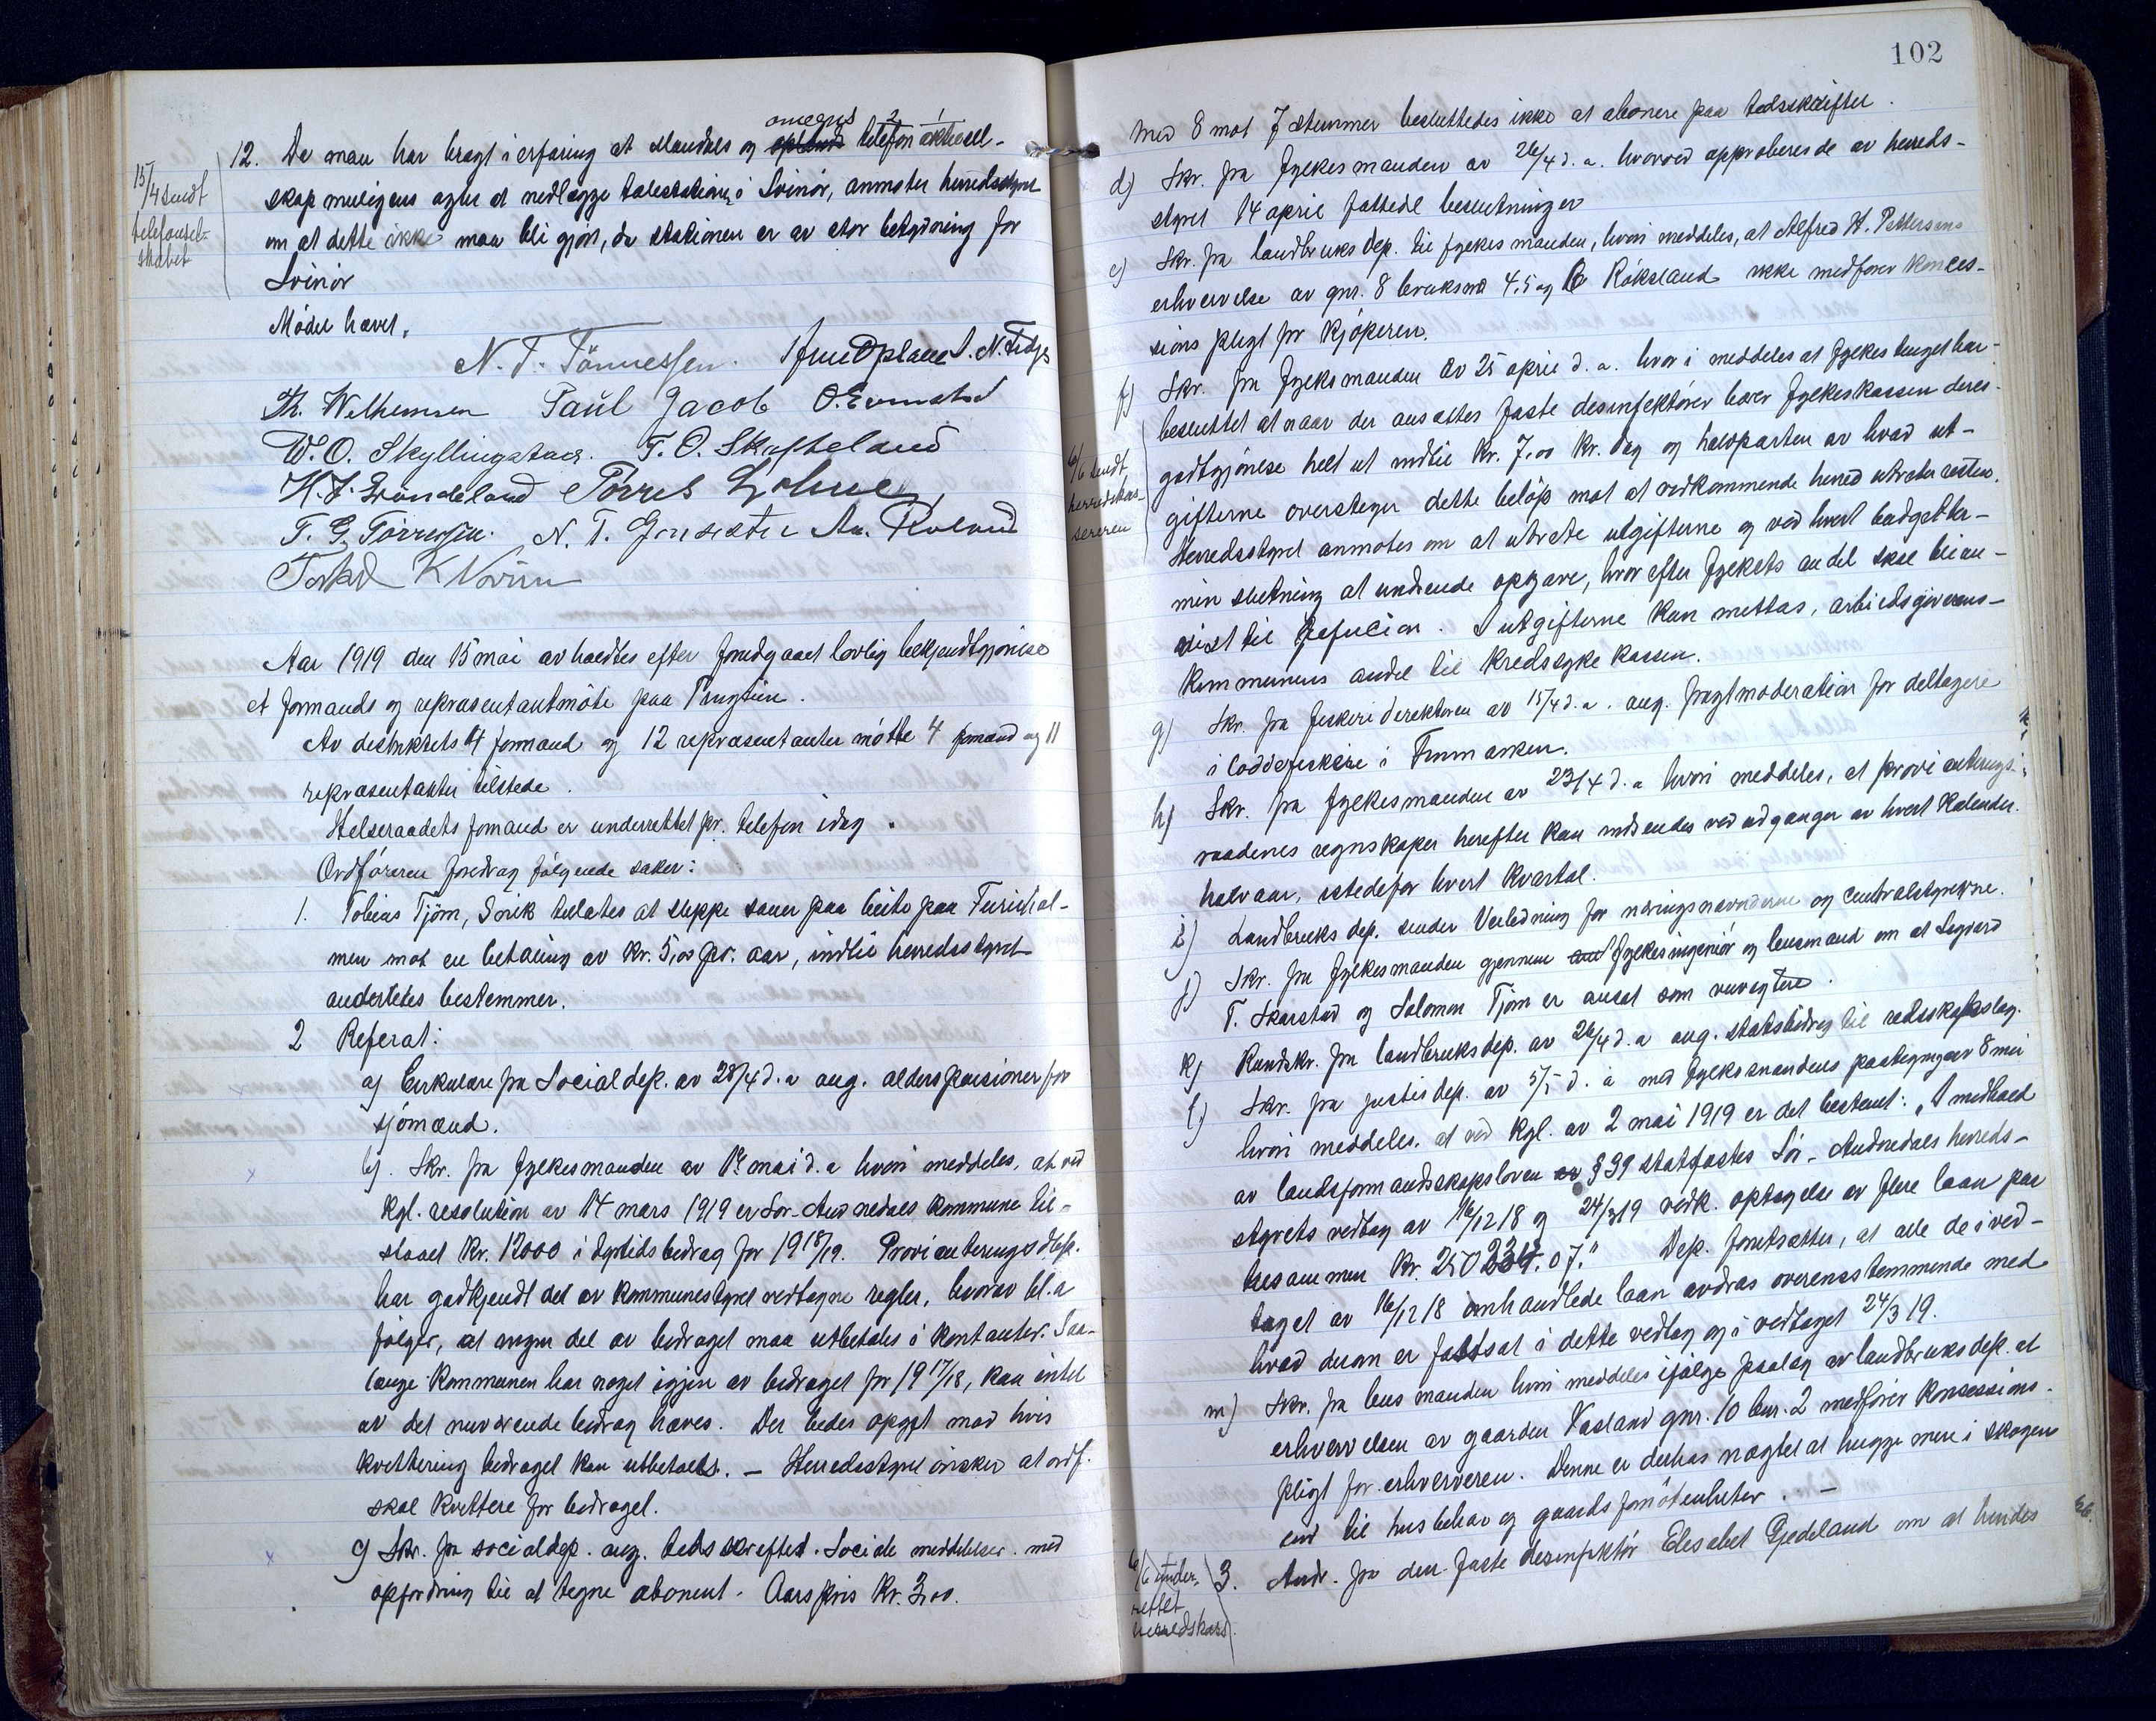 12. Da man har bragt i erfaring at Mandals og omegns telefon aktiesel-
skap muligens agter at nedlægge talestationen i Svinör, anmoter herredsstyret
om at dette ikke maa bli gjort, da stationen er av stor betydning for
Svinör
Mödet hævet.
15/4 sendt
telefonsel-
skabet
N. T. Tönnessen.
Th. Wilhemsen Paul Jacob
W. O. Skyllingstad. T. O. Skofteland
Törres
T. G. Törressen. N. T.
Aar 1919 den 15 mai avholdtes efter foredgaaet lovlig bekjendtgjörelse
et formands og repræsentantmöte paa Trygtun.
Av destriktets 4 formænd og 12 repræsentanter mötte 4 formænd og 11
repræsentanter tilstede.
Helseraadets formand er underrettet pr. telefon idag.
Ordföreren foredrag fölgende saker:
1. Tobias Tjöm, tillates at sleppe sauer paa beite paa
men mot en betaling av kr. 5,00 pr. aar, indtil herredsstyret
anderledes bestemmer.
2 Referat:
a) Cirkulære fra Socialdep. av 28/4 d. a ang. alderspensioner for
sjömænd.
b). Skr. fra fylkesmanden av 12 mai d. a hvori meddeles, at ved
kgl. resolution av 14 mars 1919 er Sör-Audnedals kommune til-
staaet kr. 12000 i dyrtidsbidrag for 1918/19. Provianteringsdep.
har godkjendt det av kommunestyret vedtagne regler, hvorav bl. a
fölger, at ingen del av bidraget maa utbetales i kontanter. Saa-
længe kommunen har noget igjen av bidraget for 1917/18, kan intet
av det nuværende bidrag hæves. Der bedes opgit mod hvis
kvittering bidraget kan utbetales. – Herredsstyret önsker at ordf.
skal kvittere for bidraget.
c) Skr. fra socialdep. ang. tidsskriftet. Sociale meddelelser. med
opfordring til at tegne abonent. Aarspris kr. 3,00.
102
Med 8 mot 7 stemmer besluttedes ikke at abonere paa tidsskriftet.
d) Skr. fra fylkesmanden av 26/4 d. a. hvorved approberes de av herreds-
styret 14 april fattede beslutninger
e) Skr. fra landbruksdep. til fylkesmanden, hvori meddeles, at Alfred H. Pettersens
erhvervelse av gnr. 8 bruksnr 4, 5 og 6 Röksland ikke medförer konces-
sions pligt for kjöperen.
f) Skr. fra fylkesmanden av 25 april d. a. hvori meddeles at fylkestinget har
besluttet at naar der ansættes faste desinfektörer bærer fylkeskassen deres
godtgjörelse helt ut indtil kr. 7,00 pr. dag og halvparten av hvad ut-
gifterne overstiger dette belöp mot at vedkommende herred utreder resten.
Herredsstyret anmotes om at utrede utgifterne og ved hvert budgetter-
min slutning at indsende opgave, hvorefter fylkets andel skal bli an-
vist til refusion. I utgifterne kan medtas, arbeidsgiverens-
kommunens andel til kredssykekassen.
6/6 sendt
herredskas-
sereren
g) Skr. fra fiskeridirektören av 15/4 d. a. ang. fragtmoderation for deltagere
i loddefisket i Finmarken.
h) Skr. fra fylkesmanden av 23/4 d. a hvori meddeles, at provianterings-
raadenes regnskaper herefter kan indsendes ved utgangen av hvert kalender-
halvaar, istedefor hvert kvartal.
i) Landbruksdep. sender Veiledning for næringsnævnderne og centralstyrerne.
j) Skr. fra fylkesmanden gjennem fylkesingeniör og lensmand om at Sigvard
T. Skarstad og Salomon Tjöm er ansat som veivogtere.
k) Rundskr. fra landbruksdep. av 26/4 d. a ang. statsbidrag til redskapslag.
l) Skr. fra justisdep. av 5/5 d. a med fylkesmandens paategning av 8 mai
hvori meddeles. at ved kgl. av 2 mai 1919 er det bestemt: „I medhold
av landsformandskapsloven § 39 statfæstes Sör-Audnedals herreds-
styrets vedtag av 16/12 18 og 24/3 19 vedk. optagelse av flere laan paa
tilsammen kr. 250 234.07." Dep. forutsætter, at alle de i ved-
taget av 16/12 18 omhandlede laan avdras overensstemmende med
hvad derom er fastsat i dette vedtag og i vedtaget 24/3 19.
m) Skr. fra lensmanden hvori meddeles ifölge paalæg av landbruksdep. at
erhvervelsen av gaarden Vasland gnr. 10 bnr. 2 medförer konsessions-
pligt for erhververen. Denne er derhos nægtet at hugge mere i skogen
end til husbehov og gaards fornötenheter. –
6/6 under-
rettet
herredskass.
3. Andr. fra den faste desinfektör Elisabet Gjedeland om at hendes